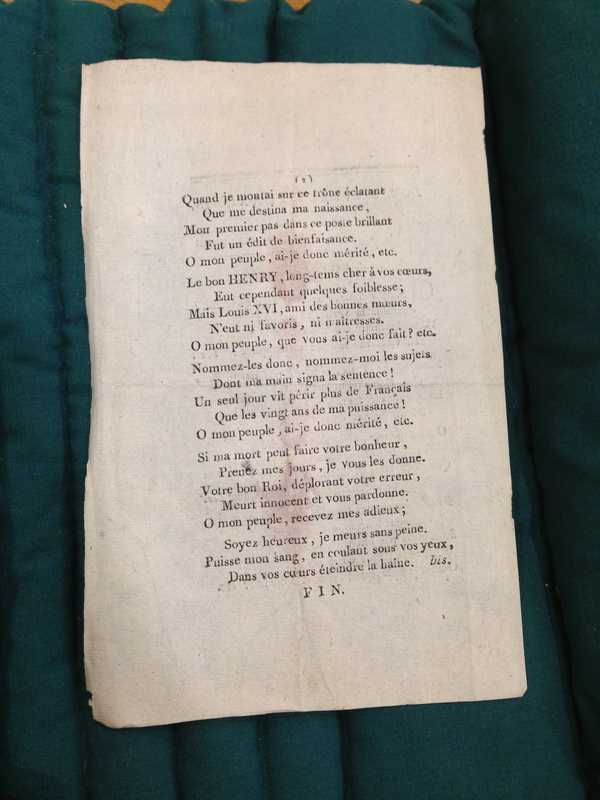 (2)
Quand je montai sur ce trône éclatant
Que me destina ma naissance,
Mon premier pas dans ce poste brillant
Fut un édit de bienfaisance.
O mon peuple, ai-je donc mérité, etc.
Le bon HENRY, long-tems cher à vos cœurs,
Eut cependant quelques foiblesse;
Mais Louis XVI, ami des bonnes mœurs,
N'eut ni favoris, ni maîtresses.
O mon peuple, que vous ai-je donc fait? etc.
Nommez-les donc, nommez-moi les sujets
Dont ma main signa la sentence!
Un seul jour vit périr plus de Français
Que les vingt ans de ma puissance!
O mon peuple, ai-je donc mérité, etc.
Si ma mort peut faire votre bonheur,
Prenez mes jours, je vous les donne.
Votre bon Roi, déplorant votre erreur,
Meurt innocent et vous pardonne.
O mon peuple, recevez mes adieux;
Soyez heureux, je meurs sans peine.
Puisse mon sang, en coulant sous vos yeux,
Dans vos cœurs éteindre la haine. bis.
FIN.